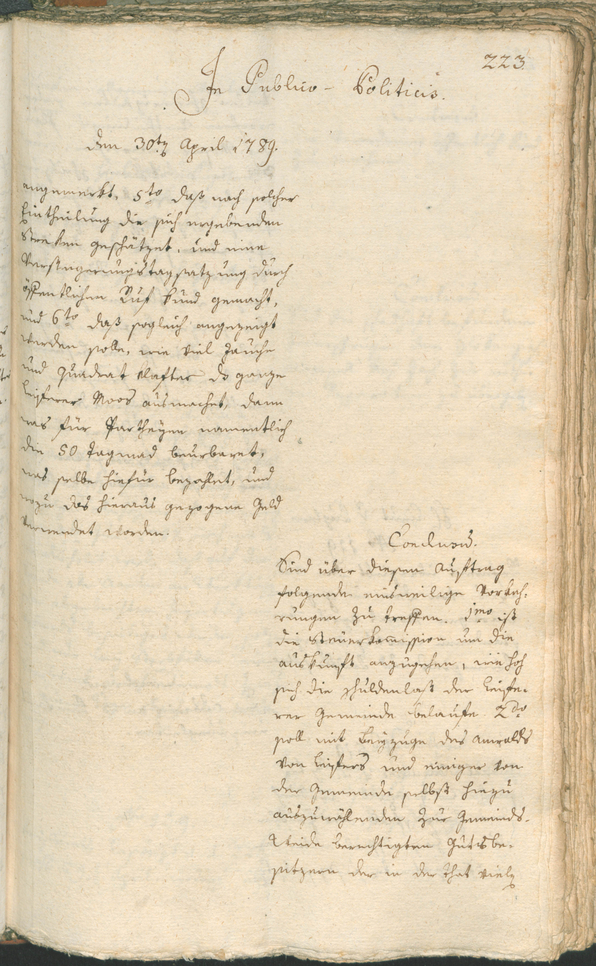 223.
In Publico-Politicis.
den 30ten April 1789.
angemerkt, 5to daß nach solcher
Eintheilung die sich ergebenden
Streken geschätzet, und eine
Versteigerungstagsatzung durch
öffentlichen Ruf kund gemacht,
und 6to daß sogleich angezeigt
werden solle, wie viel Jauche
und Quadrat Klafter das ganze
Leyferer Moos ausmachet, dann
was für Partheyen namentlich
die 50 Tagmad beurbaret,
was selbe hiefür bezahlet, und
wozu das hieraus gezogene Geld
verwendet worden.
Conclusum.
Sind über diesen Auftrag
folgende einsweilige Vorkeh-
rungen zu treffen. 1mo ist
die Steuerkomission um die
Auskunft anzugehen, wie hoch
sich die Schuldenlast der Leyfe-
rer Gemeinde belaufe 2do
soll mit Beyzuge des Anwalds
von Leyfers und einiger von
der Gemeinde selbst hiezu
auszuwählenden zur Gemeinds-
Weide berechtigten Gutsbe-
sitzern der in der That viel